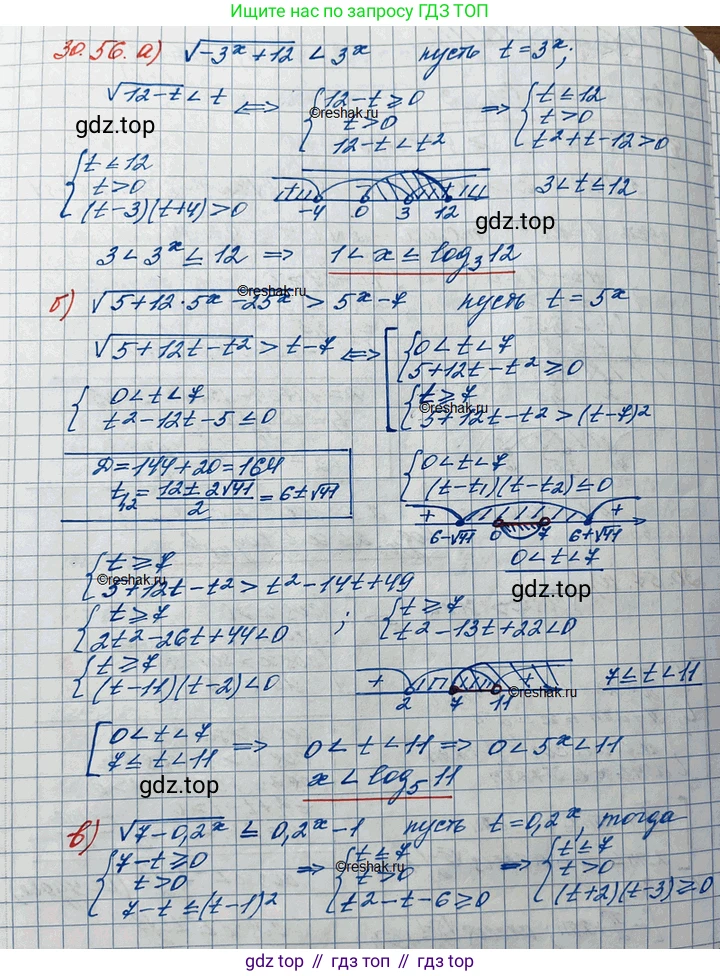 Ищите нас по запросу ГДЗ ТОП
30.56. а) √(-3ˣ+12) < 3ˣ пусть t = 3ˣ;
√(12-t) < t ⟺ { 12-t ≥ 0 ⇒ { t ≤ 12
t > 0 t > 0
12-t < t² t²+t-12 > 0
©reshak.ru
gdz.top
{ t ≤ 12
t > 0
(t-3)(t+4) > 0
-4 0 3 12
3 < t ≤ 12
gdz.top
3 < 3ˣ ≤ 12 ⇒ 1 < x ≤ log₃12
©reshak.ru
б) √(5+12·5ˣ-25ˣ) > 5ˣ-7 пусть t = 5ˣ
√(5+12t-t²) > t-7 ⟺ [ { 0 < t < 7
5+12t-t² ≥ 0
{ t ≥ 7
5+12t-t² > (t-7)²
©reshak.ru
{ 0 < t < 7
t²-12t-5 ≤ 0
D = 144+20 = 164
t₁,₂ = (12±2√41)/2 = 6±√41
{ 0 < t < 7
(t-t₁)(t-t₂) ≤ 0
+ +
6-√41 0 7 6+√41
0 < t < 7
gdz.top
{ t ≥ 7
5+12t-t² > t²-14t+49
©reshak.ru
{ t ≥ 7 ; { t ≥ 7
2t²-26t+44 < 0 t²-13t+22 < 0
{ t ≥ 7
(t-11)(t-2) < 0
+ +
2 7 11
©reshak.ru
7 ≤ t < 11
[ 0 < t < 7
7 ≤ t < 11 ⇒ 0 < t < 11 ⇒ 0 < 5ˣ < 11
gdz.top
x < log₅11
gdz.top
в) √(7-0,2ˣ) ≤ 0,2ˣ-1 пусть t = 0,2ˣ, тогда
{ 7-t ≥ 0 ⇒ { t ≤ 7 ⇒ { t ≤ 7
t > 0 t > 0 t > 0
7-t ≤ (t-1)² t²-t-6 ≥ 0 (t+2)(t-3) ≥ 0
©reshak.ru
gdz.top // гдз.топ // gdz.top // гдз.топ // gdz.top